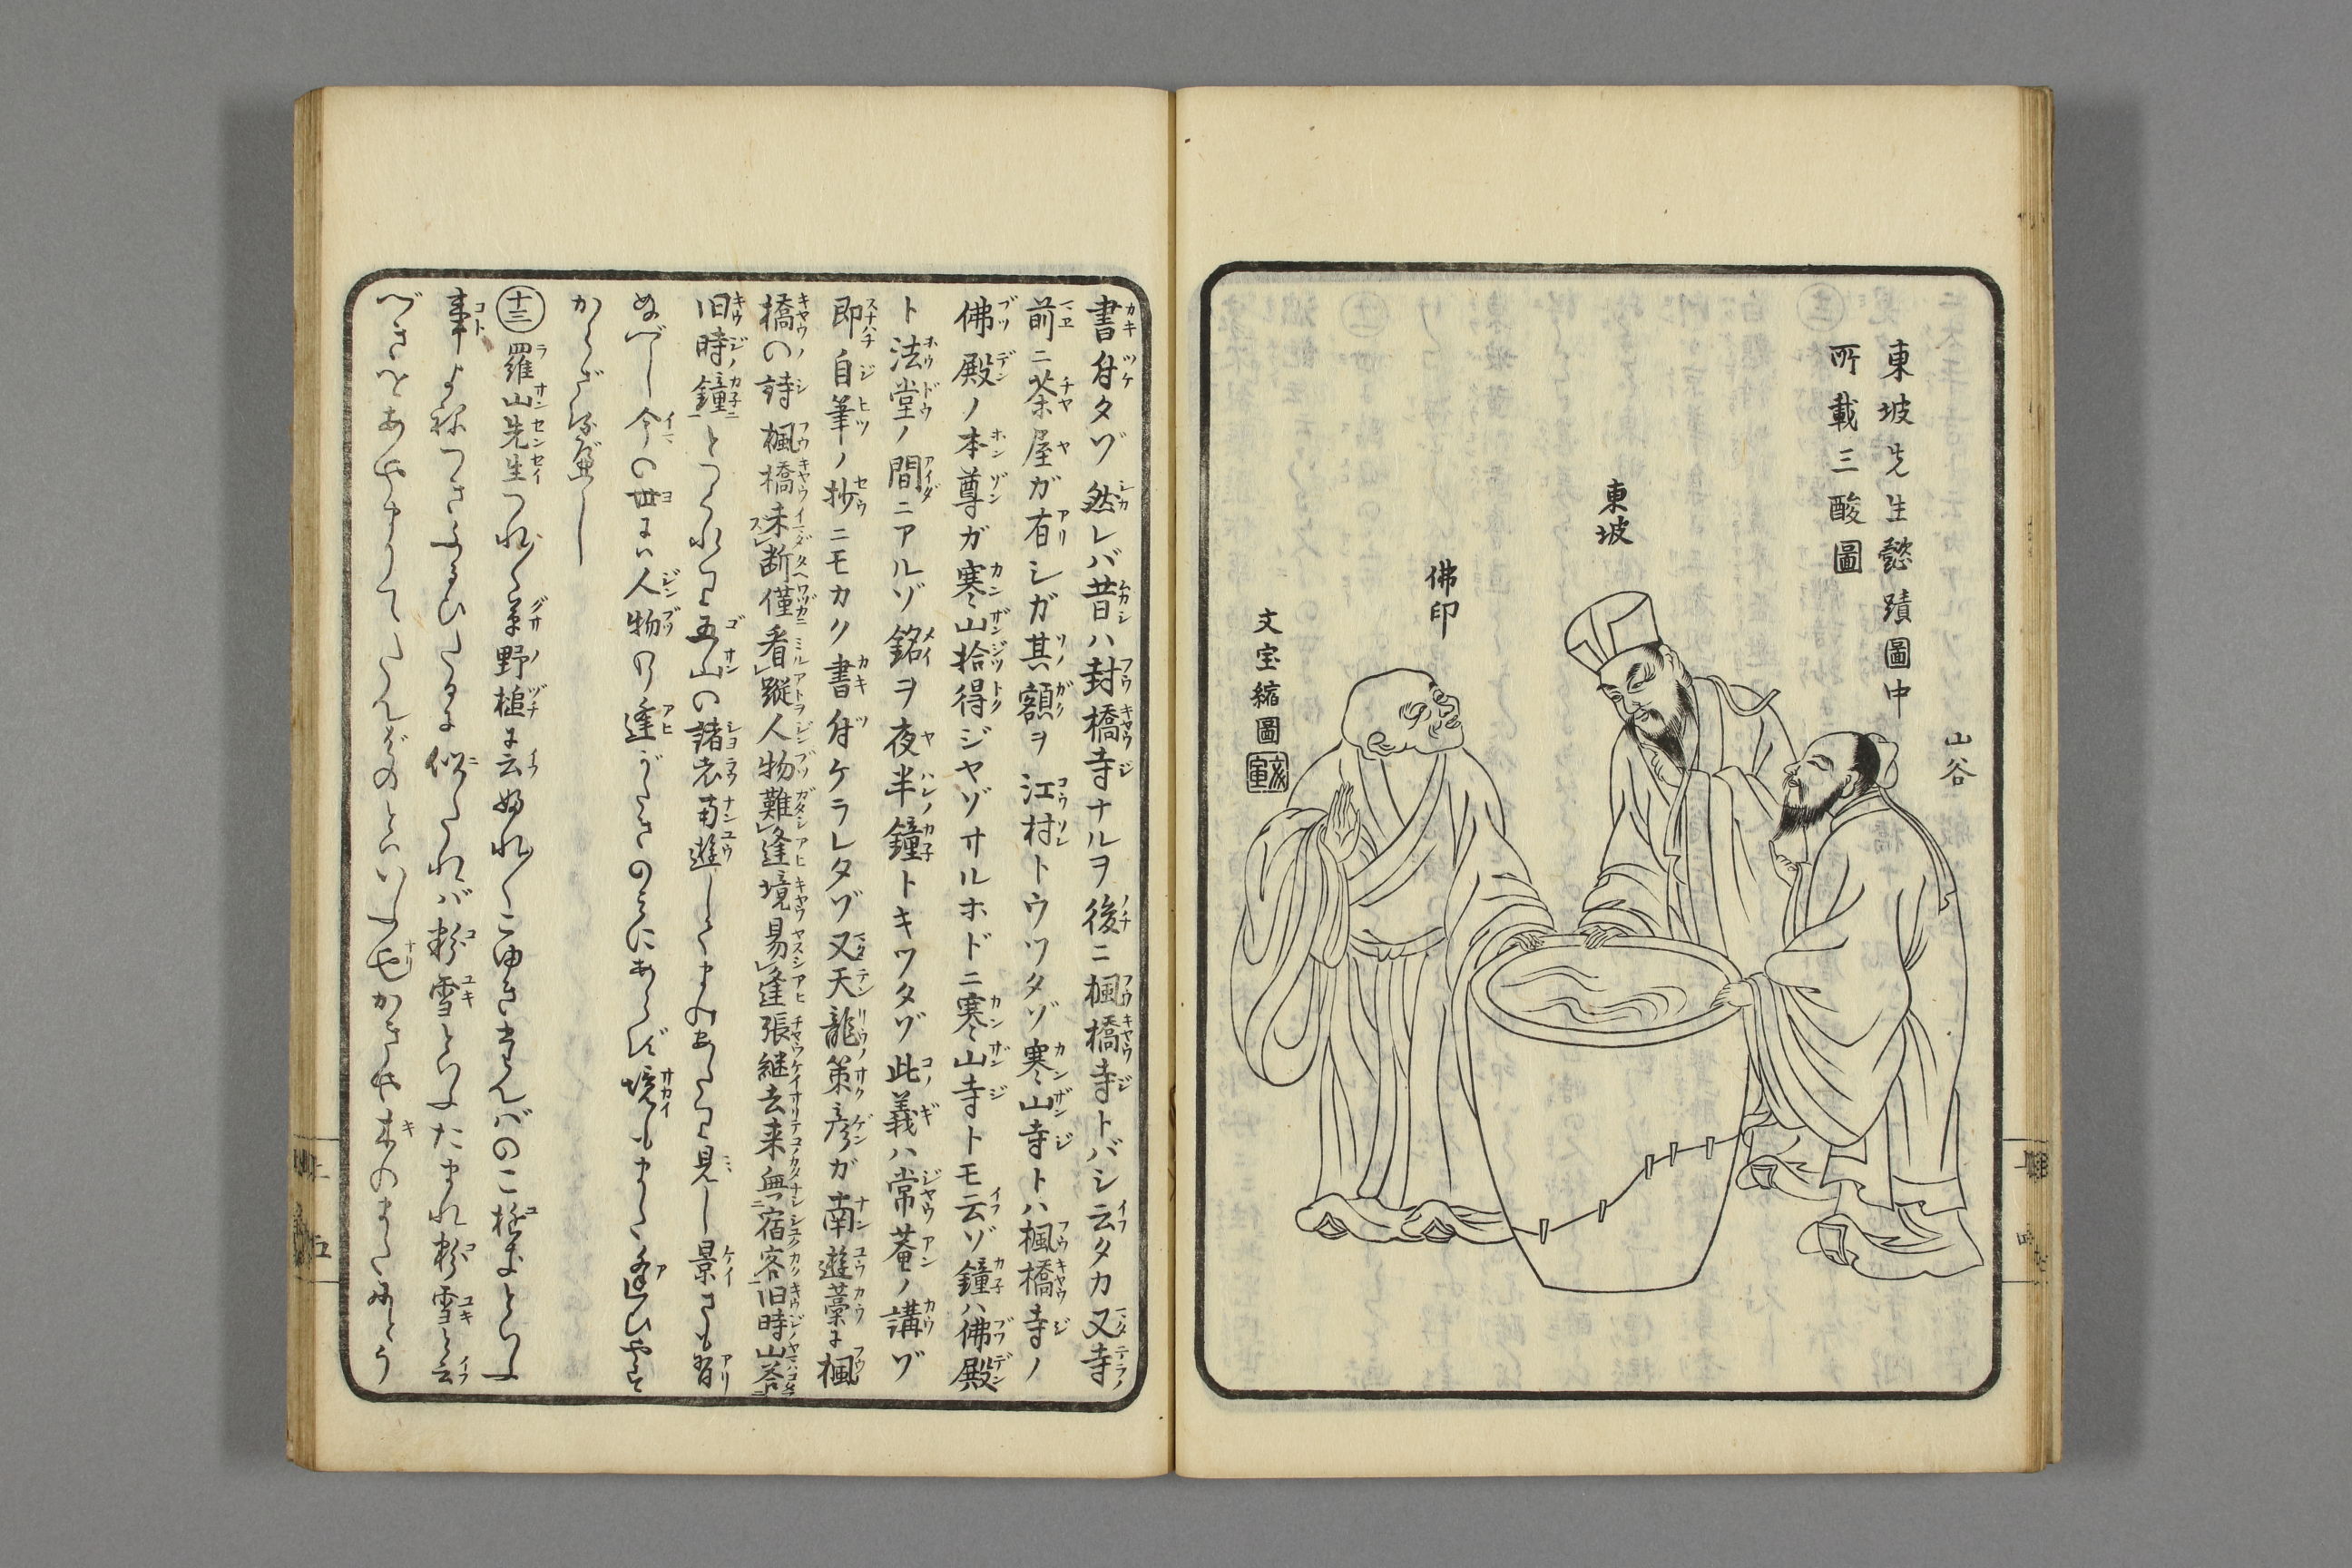 東坡先生懿蹟圖中
所載三酸圖
山谷
東坡
佛印
文宝縮圖
書付タゾ然レバ昔ハ封橋寺ナルヲ後ニ楓橋寺トバシ云タカ又寺
前ニ茶屋ガ有シガ其額ヲ江村トウツタゾ寒山寺トハ楓橋寺ノ
佛殿ノ本尊ガ寒山拾得ジヤゾサルホドニ寒山寺トモ云ゾ鐘ハ佛殿
ト法堂ノ間ニアルゾ銘ヲ夜半鐘トキツタゾ此義ハ常菴ノ講ゾ
即自筆ノ抄ニモカク書付ケラレタゾ又天龍策彦ガ南遊藁に楓
橋の詩楓橋未断僅看蹤人物難逢境易逢張継去来無宿客旧時山答
旧時鐘とつくれり五山の諸老南遊してまのあたり見し景さも有
ぬべし今の世には人物の逢がたきのみにあらず境もまた逢ひやす
からざるべし
十三 羅山先生つれ〴〵草野槌に云ふれ〳〵こゆきたんばのこ雪といふ
事よねつきふるひたるに似たれバ粉雪といふたまれ粉雪と云
べきをあやまりてたんばのとはいふ也かきや木のまたにとう